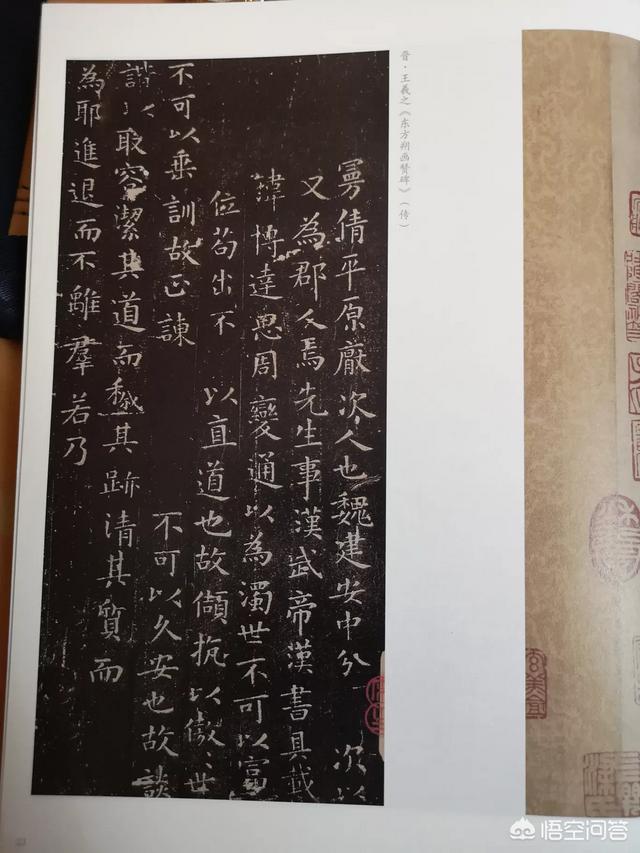 晋·王羲之《东方朔画赞碑》(传)
曼倩平原厭次人也魏建安中分 次以
又為郡人焉先生事漢武帝漢書具載
博達思周變通以為濁世不可以富
位苟出不 以直道也故頡抗以傲世
不可以垂訓故正諫 不可以久安也故談
諧以取容潔其道而穢其跡清其質而
為耶進退而不離羣若乃
悟空问答